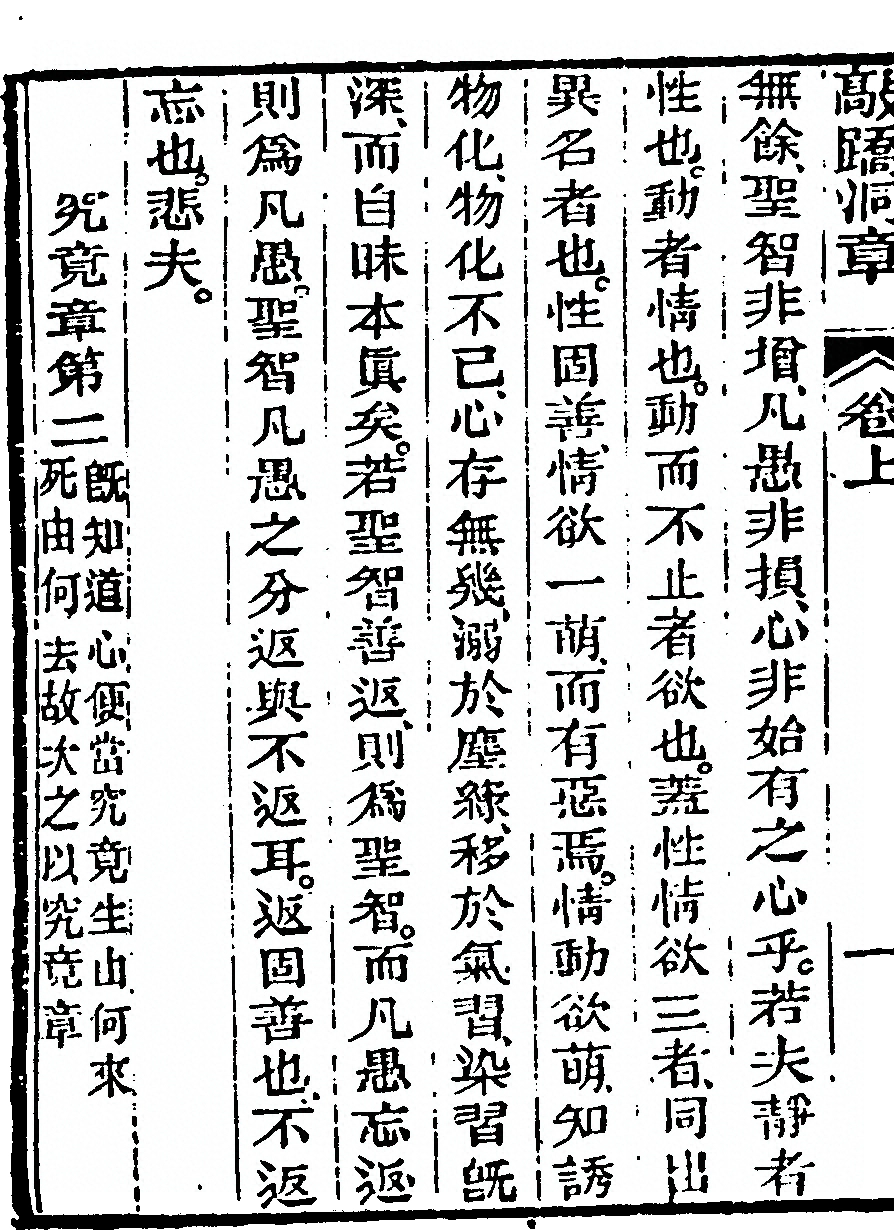 敲蹻洞章 卷上 一
無餘、聖智非增、凡愚非損、心非始有之心乎。若夫靜者
性也。動者情也。動而不止者欲也。蓋性情欲三者、同出
異名者也。性固善、情欲一萌、而有惡焉。情動欲萌、知誘
物化、物化不已、心存無幾、溺於塵緣、移於氣習、染習旣
深、而自昧本眞矣。若聖智善返、則爲聖智。而凡愚忘返
則爲凡愚。聖智凡愚之分返與不返耳。返固善也、不返
忘也。悲夫。
究竟章第二
旣知道心便當究竟生由何來
死由何去故次之以究竟章